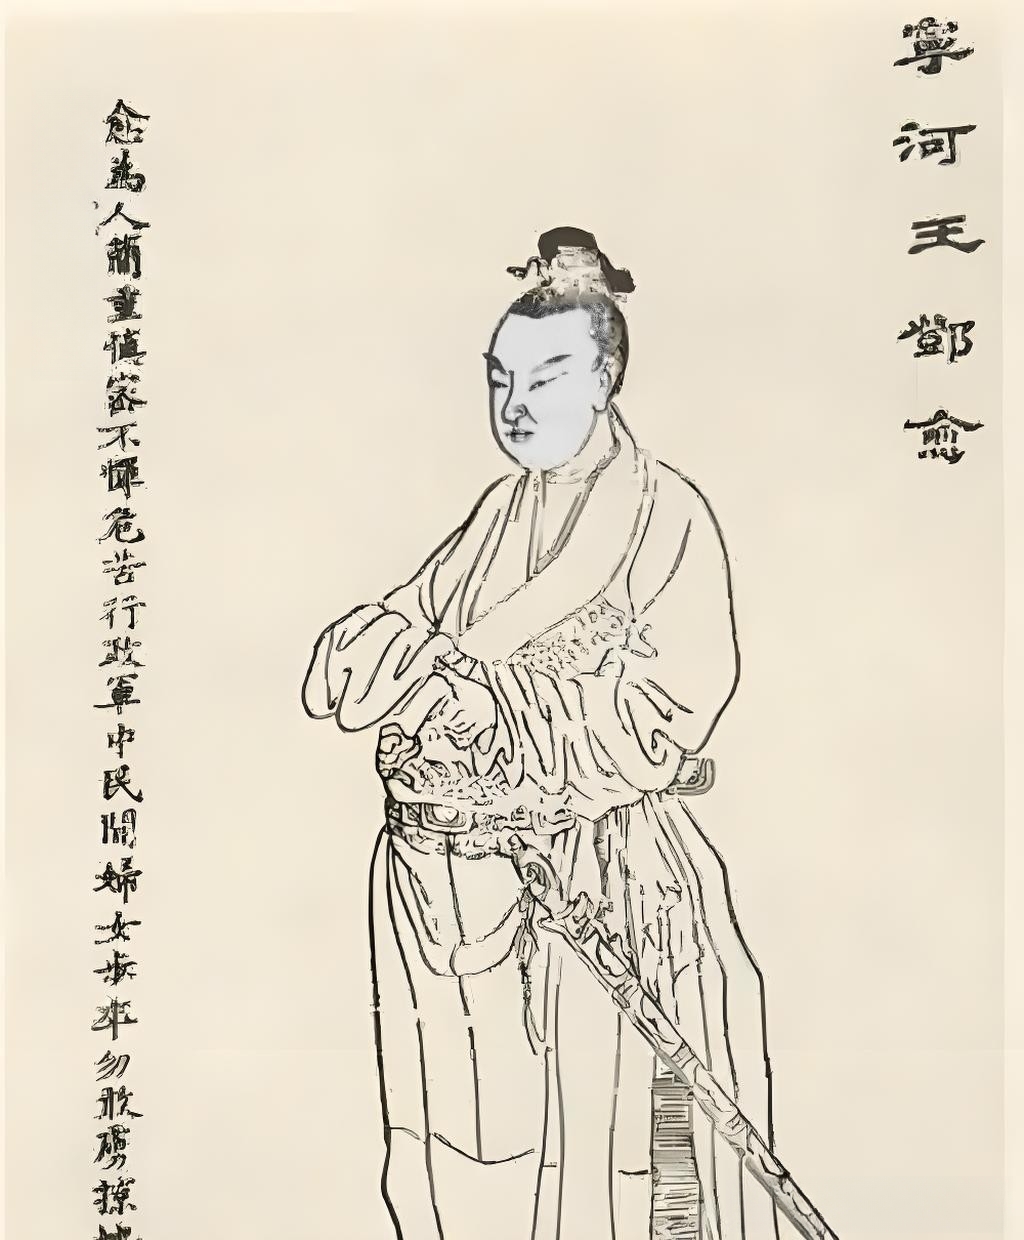 寧河王鄧愈
愈為人簡重慎密不憚危苦行政軍中民間婦女歩卒勿敢擄掠